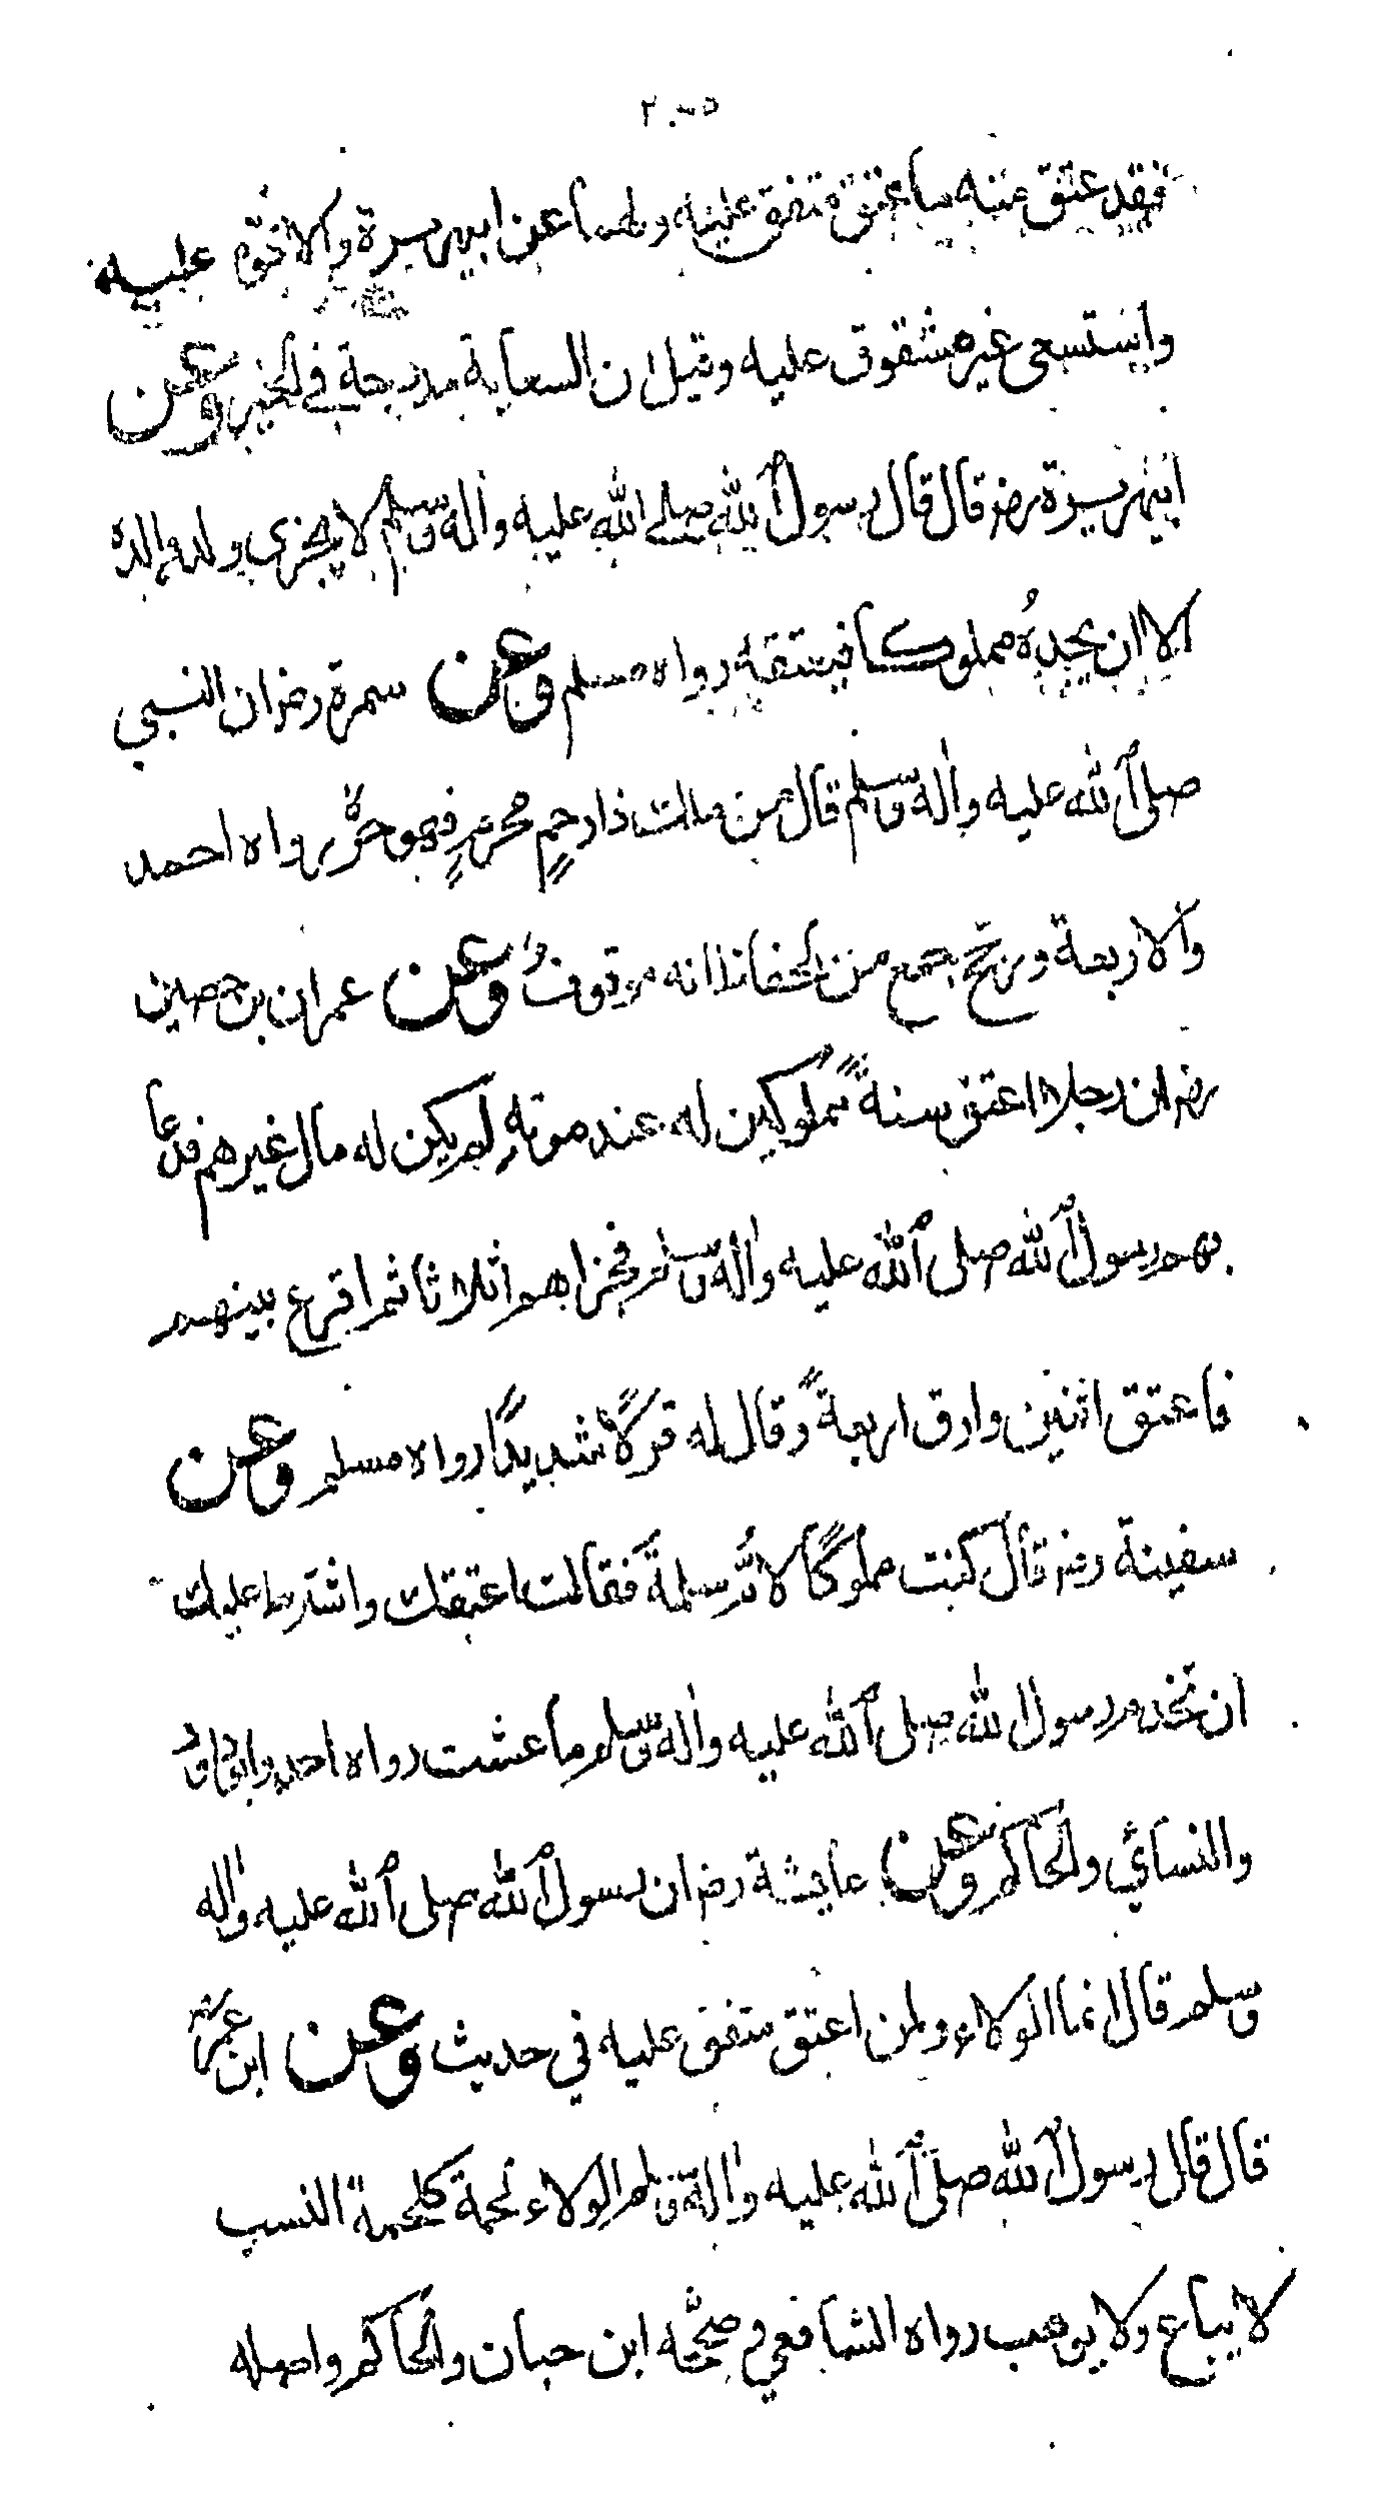 فقد عتق منه ما عتق متفق عليه ولهما عن ابيهريرة والا قوم عليه
واستسعى غير مشقوق عليه وقيل ان السعاية مدرجة في الخبر وعن
ابيهريرة رضر قال قال رسول الله صلى الله عليه واله وسلم لا يجزى ولد والده
الا ان يجده مملوكا فيعتقه رواه مسلم وعن سمرة رضر ان النبي
صلى الله عليه واله وسلم قال من ملك ذا رحمٍ محرمٍ فهو حرٌّ رواه احمد
والاربعة ورجّح جمع من الحفاظ انه موقوفٌ وعن عمران بن حصين
رضر ان رجلا اعتق ستةً مملوكين له عند موتهِ لم يكن له مال غيرهم فدعا
بهم رسول الله صلى الله عليه واله وسلم فجزاهم اثلاثا ثم اقرع بينهم
فاعتق اثنين وارق اربعةً وقال له قولًا شديدًا رواه مسلم وعن
سفينة رضر قال كنت مملوكًا لامّ سلمةَ فقالت اعتقك واشترط عليك
ان تخدم رسول الله صلى الله عليه واله وسلم ما عشت رواه احمد وابوداود
والنسائي والحاكم وعن عايشة رضر ان رسول الله صلى الله عليه واله
وسلم قال انما الولاء ولمن اعتق متفق عليه في حديث وعن ابن عمر رضر
قال قال رسول الله صلى الله عليه واله وسلم الولاء لحمة كلحمة النسب
لا يباع ولا يوهب رواه الشافعي وصحّحه ابن حبان والحاكم واصله